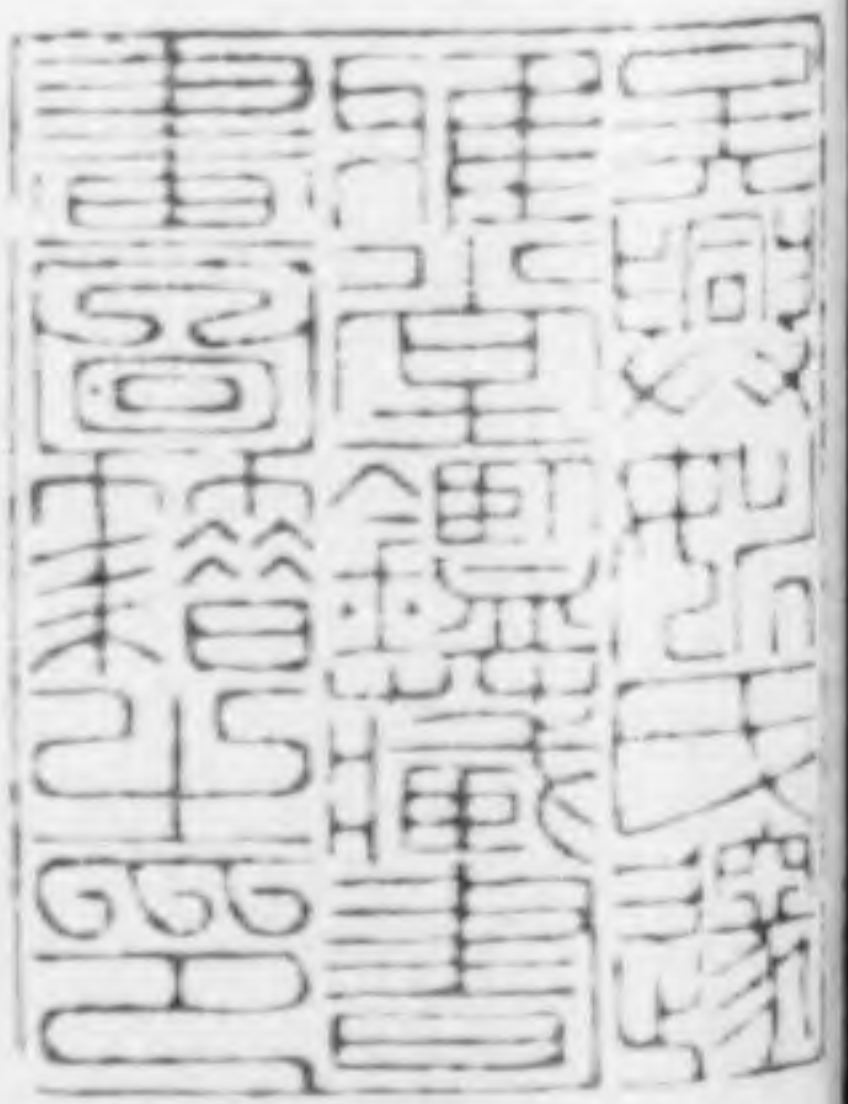 吳興姚氏邃
雅堂鑑藏書
畫圖籍之印